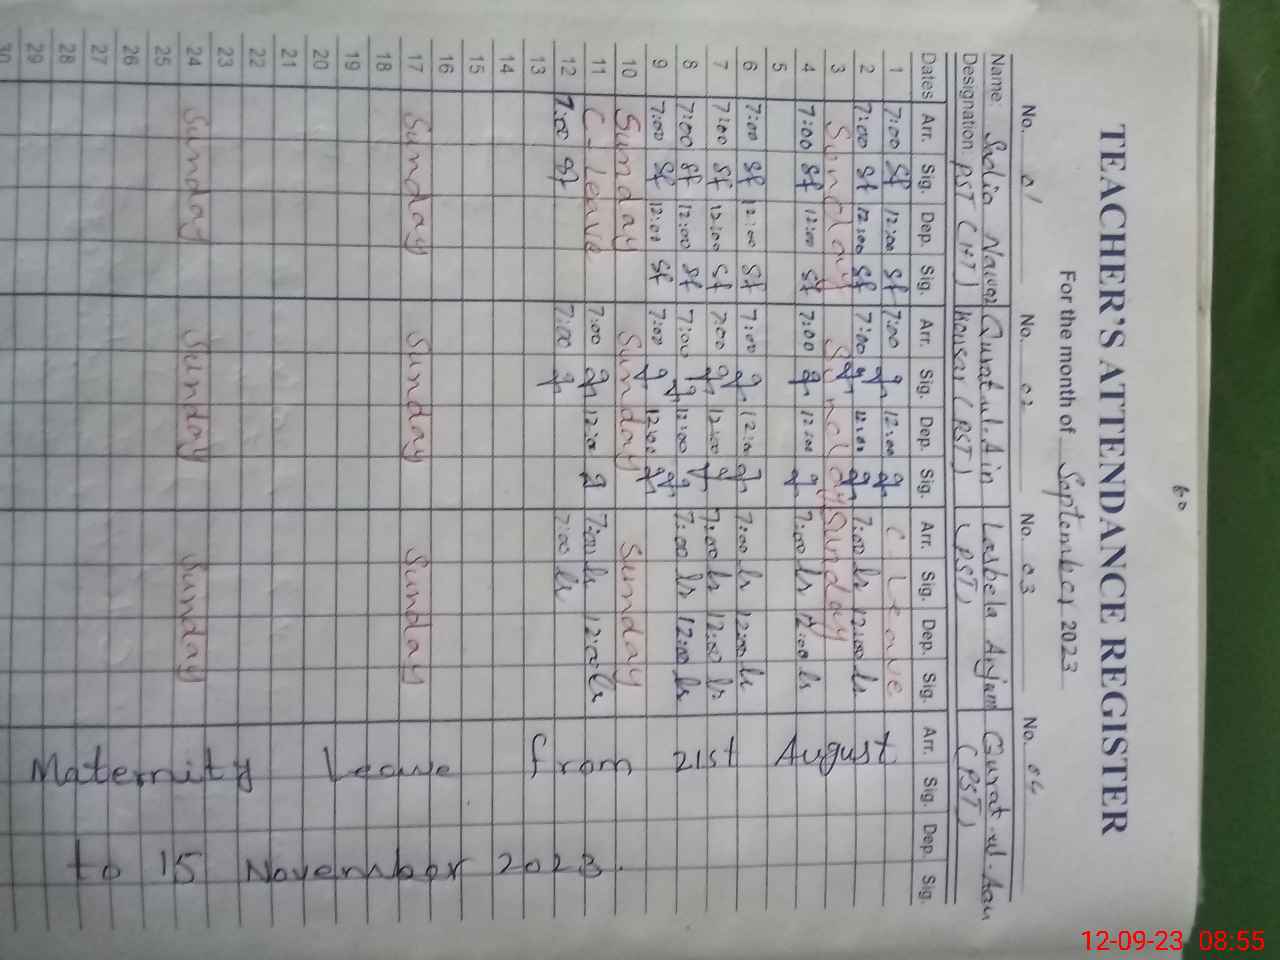 60
TEACHER'S ATTENDANCE REGISTER
For the month of September 2023
No. 01 No. 02 No. 03 No. 04
Name: Sadia Nawaz Qurat ul.Ain Lasbela Anjum Qurat.ul.Aan
Designation: PST (HT) Kousar (PST) (PST) (PST)
Dates Arr. Sig. Dep. Sig. Arr. Sig. Dep. Sig. Arr. Sig. Dep. Sig. Arr. Sig. Dep. Sig.
1 7:00 Sf 12:00 Sf 7:00 12:00 C. Leave
2 7:00 Sf 12:00 Sf 7:00 12:00 7:00 12:00
3 Sunday Sunday Sunday
4 7:00 Sf 12:00 Sf 7:00 12:00 7:00 12:00
5
6 7:00 Sf 12:00 Sf 7:00 12:00 7:00 12:00
7 7:00 Sf 12:00 Sf 7:00 12:00 7:00 12:00
8 7:00 Sf 12:00 Sf 7:00 12:00 7:00 12:00
9 7:00 Sf 12:00 Sf 7:00 12:00
10 Sunday Sunday Sunday
11 C-Leave 7:00 12:00 7:00 12:00
12 7:00 Sf 7:00 7:00
13
14
15
16
17 Sunday Sunday Sunday
18
19
20
21
22
23
24 Sunday Sunday Sunday
25
26
27
28
29
30
Maternity Leave from 21st August
to 15 November 2023.
12-09-23 08:55